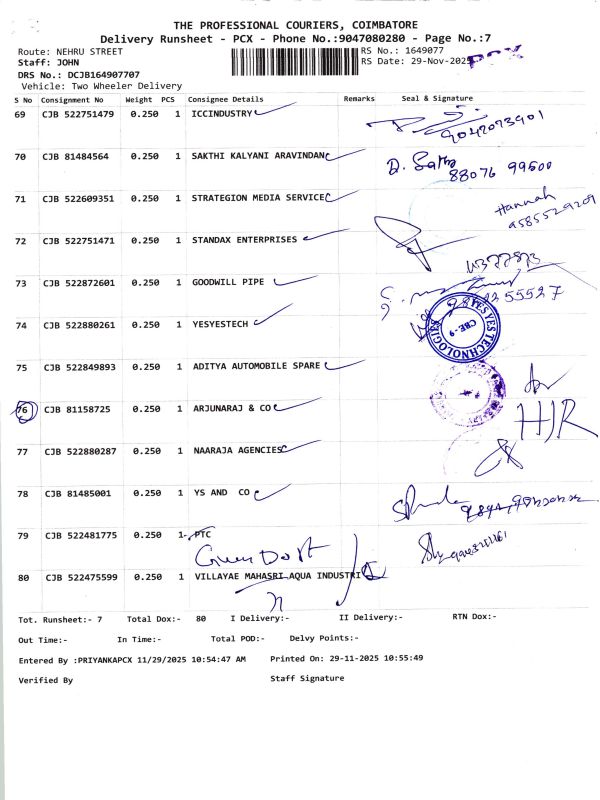 THE PROFESSIONAL COURIERS, COIMBATORE
Delivery Runsheet - PCX - Phone No.:9047080280 - Page No.:7
Route: NEHRU STREET RS No.: 1649077
Staff: JOHN RS Date: 29-Nov-2025 PCX
DRS No.: DCJB164907707
Vehicle: Two Wheeler Delivery
S No Consignment No Weight PCS Consignee Details Remarks Seal & Signature
69 CJB 522751479 0.250 1 ICCINDUSTRY
9042073901
70 CJB 81484564 0.250 1 SAKTHI KALYANI ARAVINDAN D. Sathy
88076 99500
71 CJB 522609351 0.250 1 STRATEGION MEDIA SERVICE Hannah
9585529209
72 CJB 522751471 0.250 1 STANDAX ENTERPRISES
73 CJB 522872601 0.250 1 GOODWILL PIPE
74 CJB 522880261 0.250 1 YESYESTECH YESYES TECHNOLOGIES CBE-9
75 CJB 522849893 0.250 1 ADITYA AUTOMOBILE SPARE
76 CJB 81158725 0.250 1 ARJUNARAJ & CO
77 CJB 522880287 0.250 1 NAARAJA AGENCIES
78 CJB 81485001 0.250 1 YS AND CO
79 CJB 522481775 0.250 1 PTC
80 CJB 522475599 0.250 1 VILLAYAE MAHASRI AQUA INDUSTRI
Tot. Runsheet:- 7 Total Dox:- 80 I Delivery:- II Delivery:- RTN Dox:-
Out Time:- In Time:- Total POD:- Delvy Points:-
Entered By :PRIYANKAPCX 11/29/2025 10:54:47 AM Printed On: 29-11-2025 10:55:49
Verified By Staff Signature